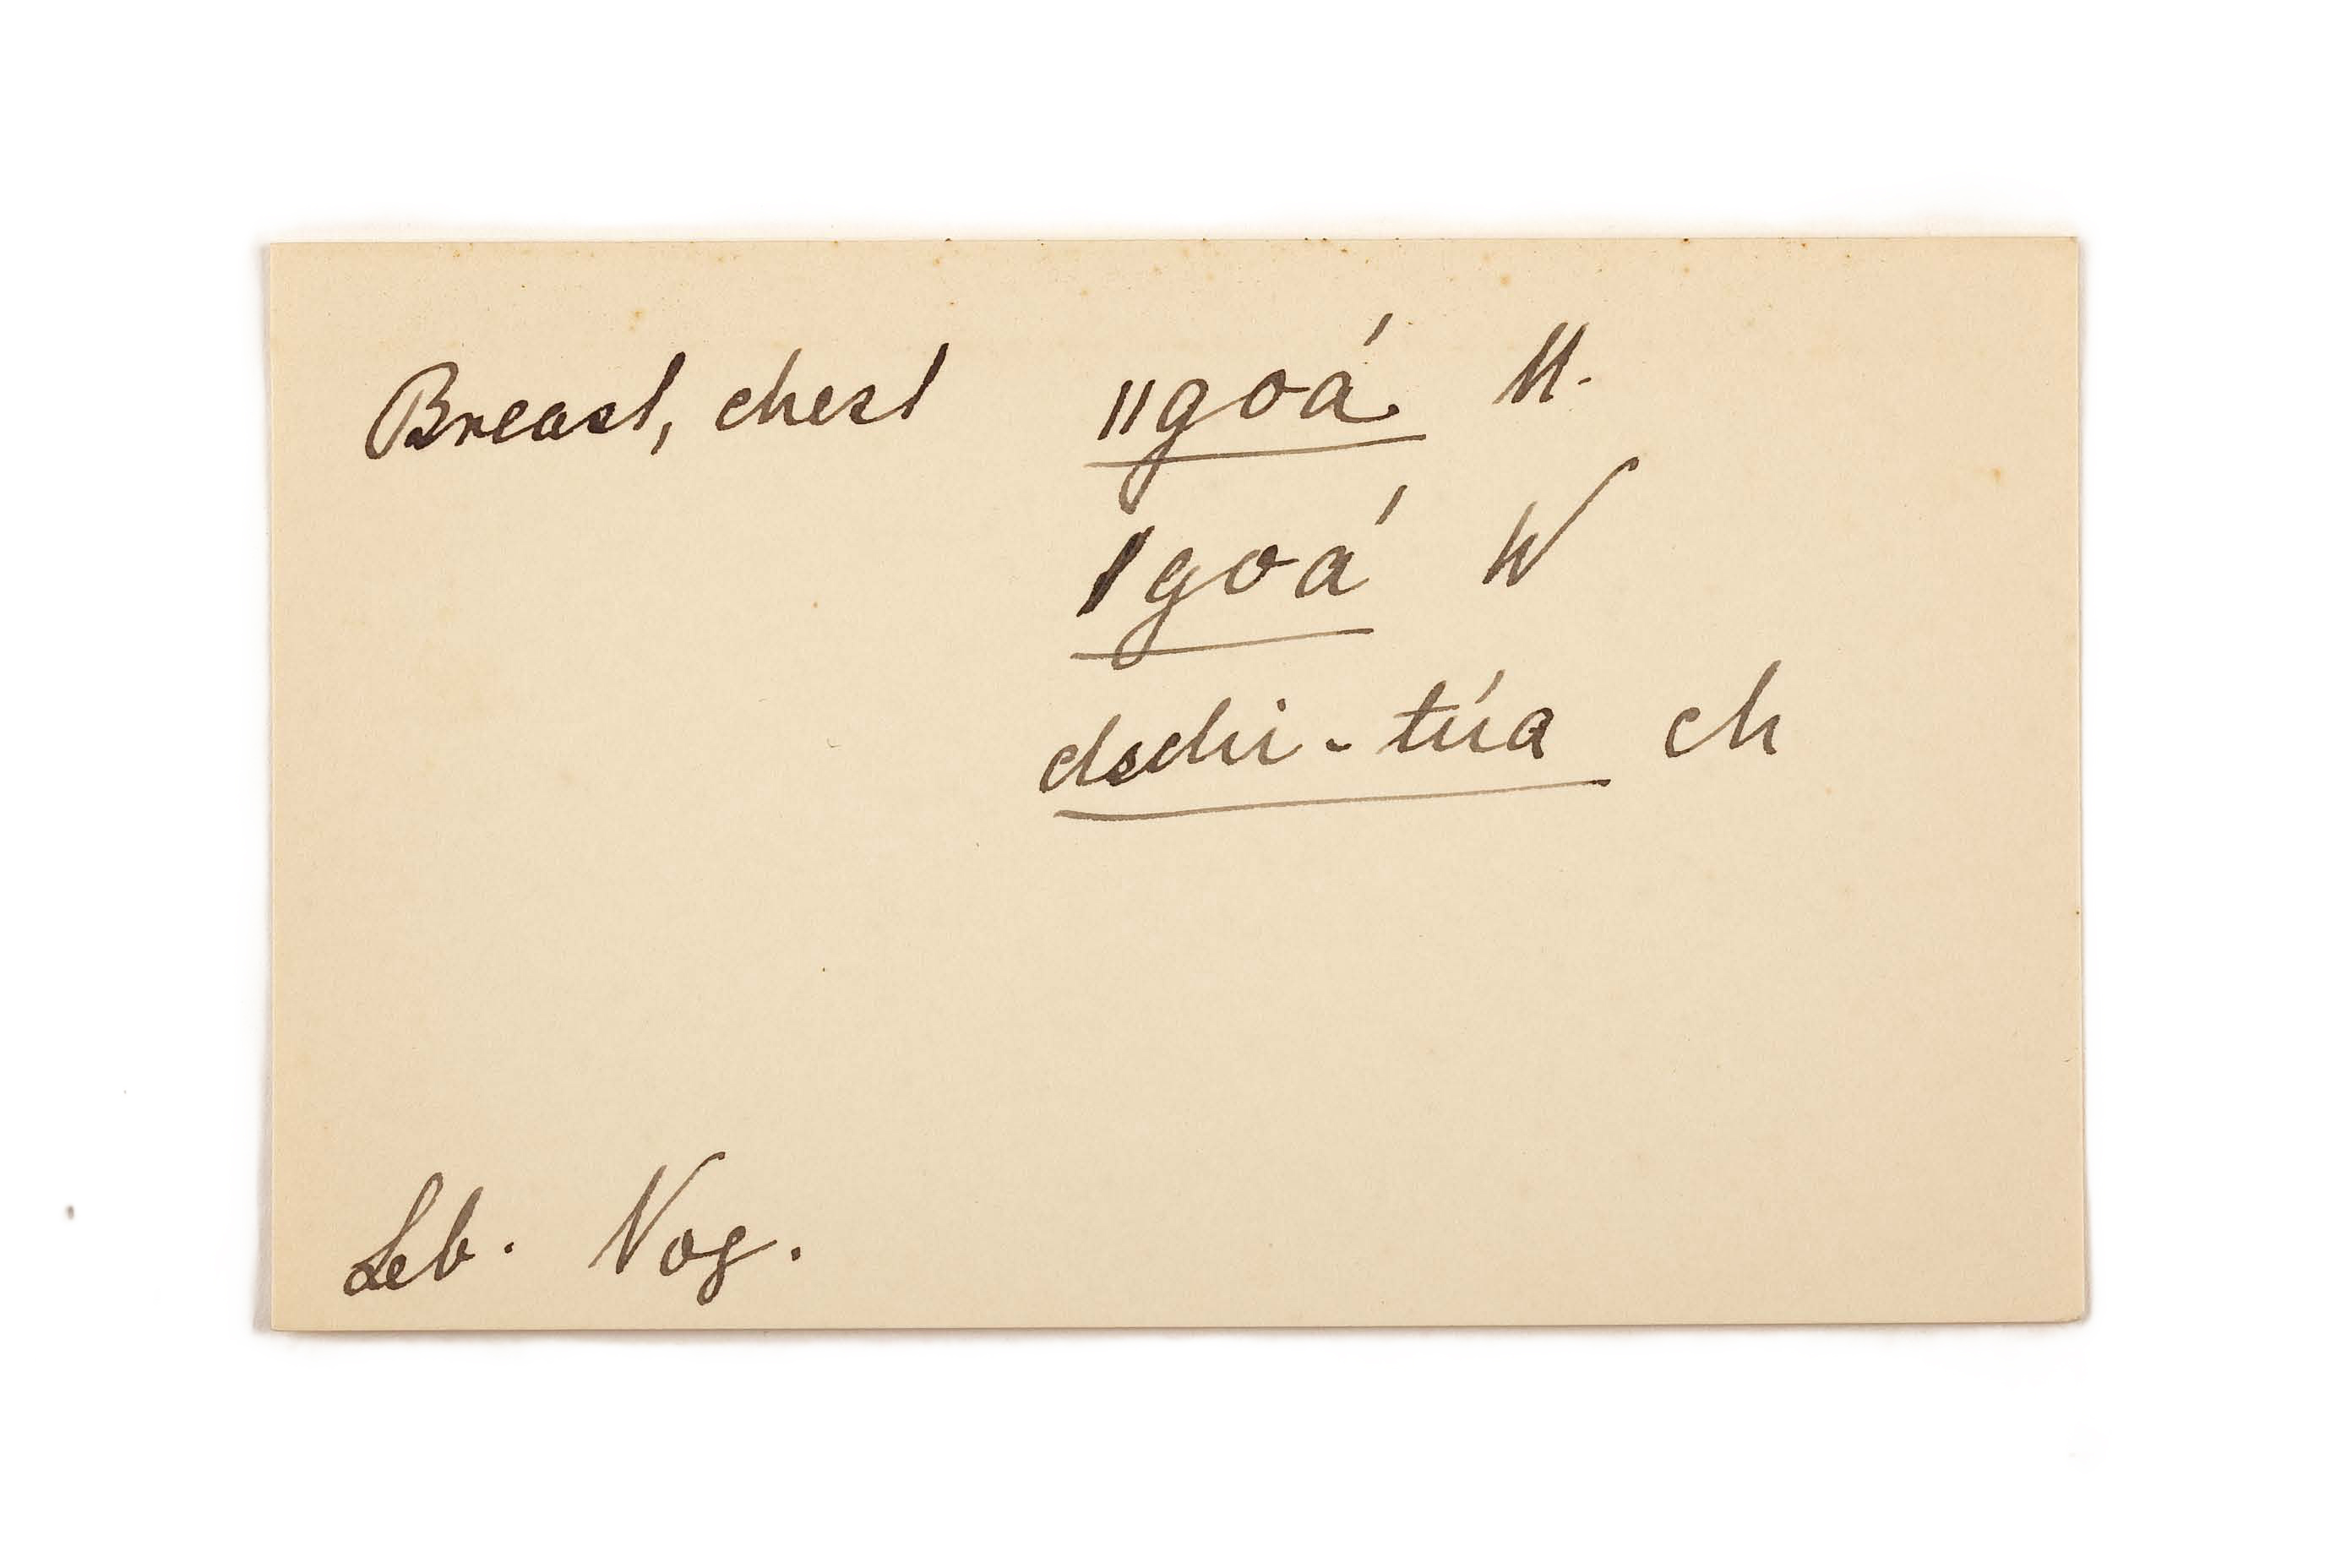 Breast, chest ǁgoá K.
ǀgoá W
dschi-túa ch
Leb. Nog.